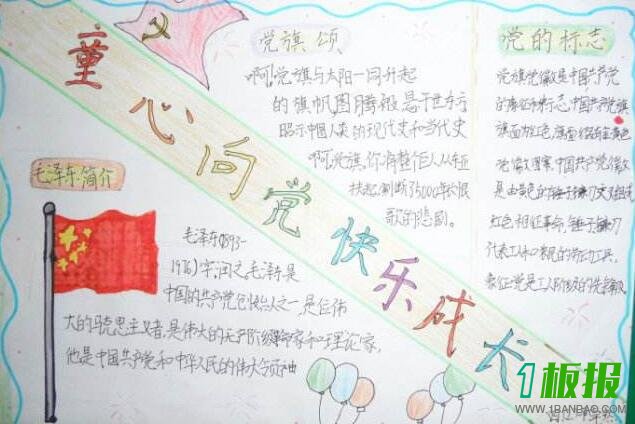 童心向党快乐成长
党旗颂
啊,党旗与太阳一同升起
的旗帜图腾般悬于世东方
昭示中国人类的现代史和当代史
啊党旗,你将整个人从东亚
扶起
歌的悲剧。
党的标志
党旗党徽是中国共产党
的象征和标志.中国共产党党旗
旗面为红色,
党徽图案.中国共产党党徽
红色相征革命,锤子镰刀
代表工人和农民的劳动工具,
象征党是工人阶级的先锋队
毛泽东简介
毛泽东(1893-
1976)字润之毛泽东是
中国的共产党创始人之一是位伟
大的马克思主义者,是伟大的无产阶级 家和理论家,
他是中国共产党和中华人民的伟大领袖
1板报
WWW.1BANBAO.COM